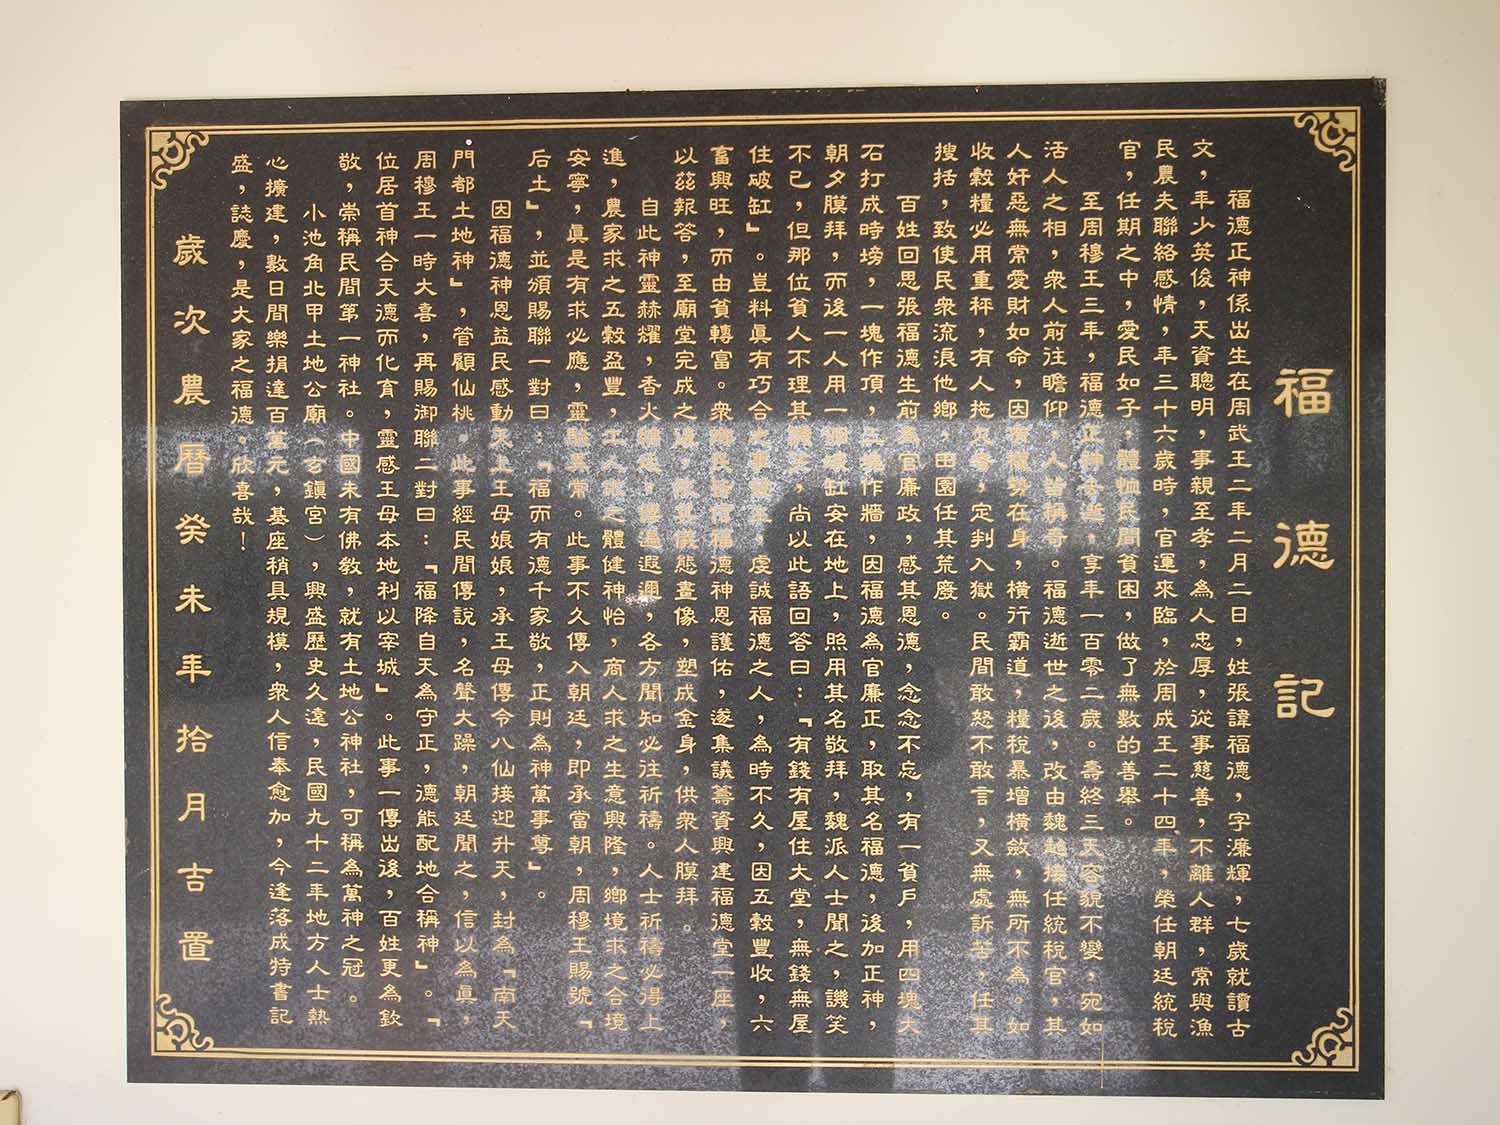 福德記
福德正神係出生在周武王二年二月二日，姓張諱福德，字濂輝，七歲就讀古
文，年少英俊，天資聰明，事親至孝，為人忠厚，從事慈善，不離人群，常與漁
民農夫聯絡感情，年三十六歲時，官運來臨，於周成王二十四年，榮任朝廷統稅
官，任期之中，愛民如子，體恤民間貧困，做了無數的善舉。
至周穆王三年，福德正神去逝，享年一百零二歲。壽終三天容貌不變，宛如
活人之相，衆人前往瞻仰，人皆稱奇。福德逝世之後，改由魏超接任統稅官，其
人奸惡無常愛財如命，因有權勢在身，橫行霸道，糧稅暴增橫斂，無所不為。如
收穀糧必用重秤，有人拖欠者，定判入獄。民間敢怒不敢言，又無處訴苦，任其
搜括，致使民衆流浪他鄉，田園任其荒廢。
百姓回思張福德生前為官廉政，感其恩德，念念不忘，有一貧戶，用四塊大
石打成時塝，一塊作頂，三塊作牆，因福德為官廉正，取其名福德，後加正神，
朝夕膜拜，而後一人用一個破缸安在地上，照用其名敬拜，魏派人士聞之，譏笑
不已，但那位貧人不理其譏笑，尚以此語回答曰：『有錢有屋住大堂，無錢無屋
住破缸』。豈料眞有巧合之事發生，虔誠福德之人，為時不久，因五穀豐收，六
畜興旺，而由貧轉富。衆鄉民皆信福德神恩護佑，遂集議籌資興建福德堂一座，
以茲報答，至廟堂完成之後，儀態畫像，塑成金身，供衆人膜拜。
自此神靈赫耀，香火，遐邇，各方聞知必往祈禱。人士祈禱必得上
進，農家求之五穀盈豐，工人求之體健神怡，商人求之生意興隆，鄉境求之合境
安寧，眞是有求必應，靈驗異常。此事不久傳入朝廷，即承當朝，周穆王賜號『
后土』，並頒賜聯一對曰：『福而有德千家敬，正則為神萬事尊』。
因福德神恩益民感動天上王母娘娘，承王母傳令八仙接迎升天，封為『南天
門都土地神』，管顧仙桃。此事經民間傳說，名聲大躁，朝廷聞之，信以為眞，
周穆王一時大喜，再賜御聯二對曰：『福降自天為守正，德能配地合稱神』。『
位居首神合天德而化育，靈感王母本地利以宰城』。此事一傳出後，百姓更為欽
敬，崇稱民間第一神社。中國未有佛教，就有土地公神社，可稱為萬神之冠。
小池角北甲土地公廟（玄鎮宮），興盛歷史久遠，民國九十二年地方人士熱
心擴建，數日間樂捐達百萬元，基座稍具規模，衆人信奉愈加，今逢落成特書記
盛，誌慶，是大家之福德，欣喜哉！
歲次農曆癸未年拾月吉置